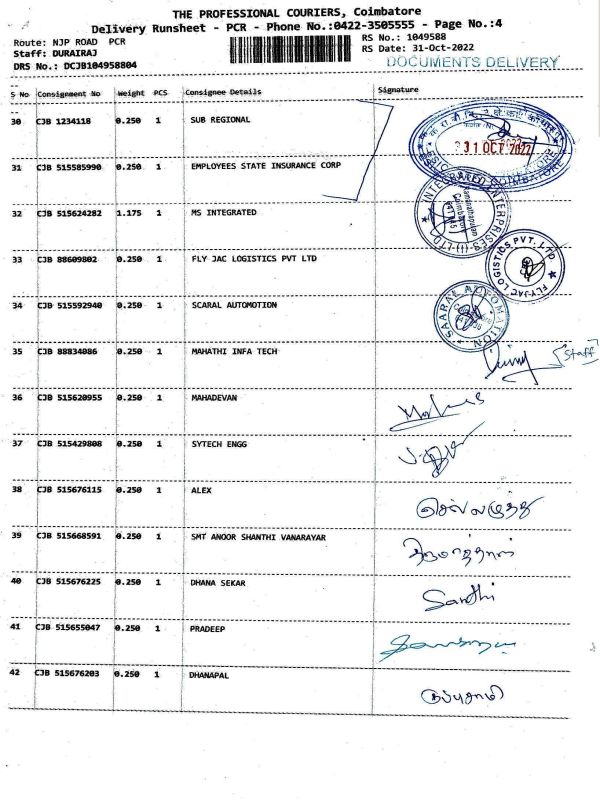 THE PROFESSIONAL COURIERS, Coimbatore
Delivery Runsheet - PCR - Phone No.:0422-3505555 - Page No.:4
Route: NJP ROAD PCR
RS No.: 1049588
Staff: DURAIRAJ
RS Date: 31-Oct-2022
DRS No.: DCJB104958804
DOCUMENTS DELIVERY
S No Consignment No Weight PCS Consignee Details Signature
30 CJB 1234118 0.250 1 SUB REGIONAL
31 OCT 2022
COIMBATORE
31 CJB 515585990 0.250 1 EMPLOYEES STATE INSURANCE CORP
INTEGRATED ENTERPRISES (I) LTD
32 CJB 515624282 1.175 1 MS INTEGRATED
33 CJB 88609802 0.250 1 FLY JAC LOGISTICS PVT LTD
FLYJAC LOGISTICS PVT. LTD.
34 CJB 515592940 0.250 1 SCARAL AUTOMOTION
SAARAL AUTOMATION
35 CJB 88834086 0.250 1 MAHATHI INFA TECH
Staff
36 CJB 515620955 0.250 1 MAHADEVAN
37 CJB 515429808 0.250 1 SYTECH ENGG
38 CJB 515676115 0.250 1 ALEX
செல்லமுத்து
39 CJB 515668591 0.250 1 SMT ANOOR SHANTHI VANARAYAR
40 CJB 515676225 0.250 1 DHANA SEKAR
Santhi
41 CJB 515655047 0.250 1 PRADEEP
42 CJB 515676203 0.250 1 DHANAPAL
குப்புசாமி